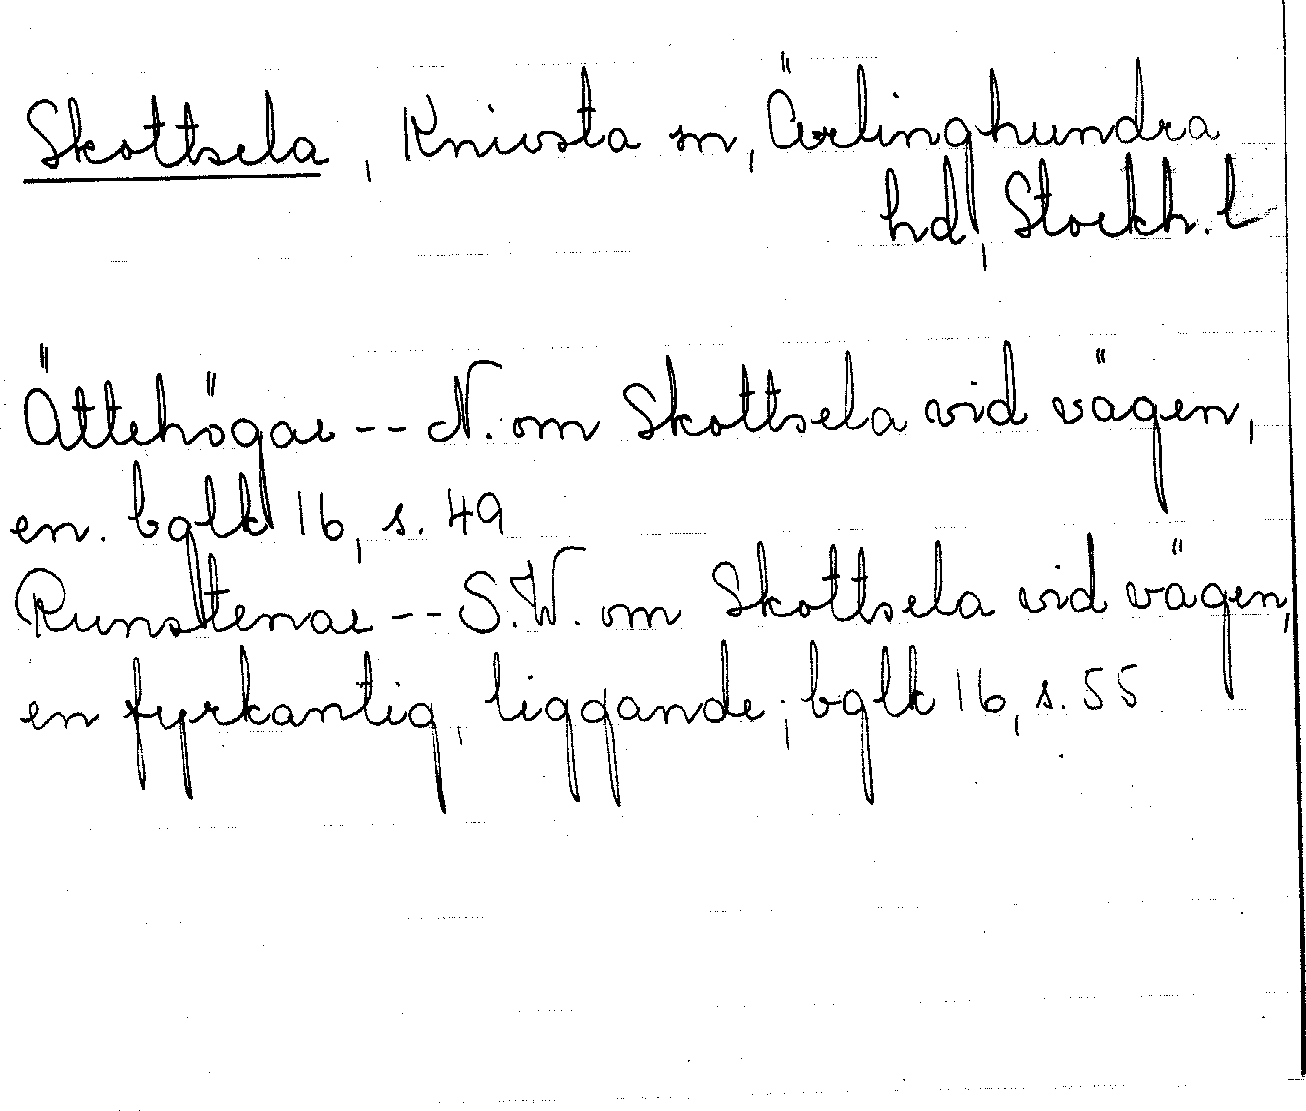 Skottsela, Knivsta sn, Ärlinghundra
hd, Stockh. l
Ättehögar -- N. om Skottsela vid vägen,
en. bglk 16, s. 49
Runstenar -- S.W. om Skottsela vid vägen,
en fyrkantig, liggande; bglk 16, s. 55